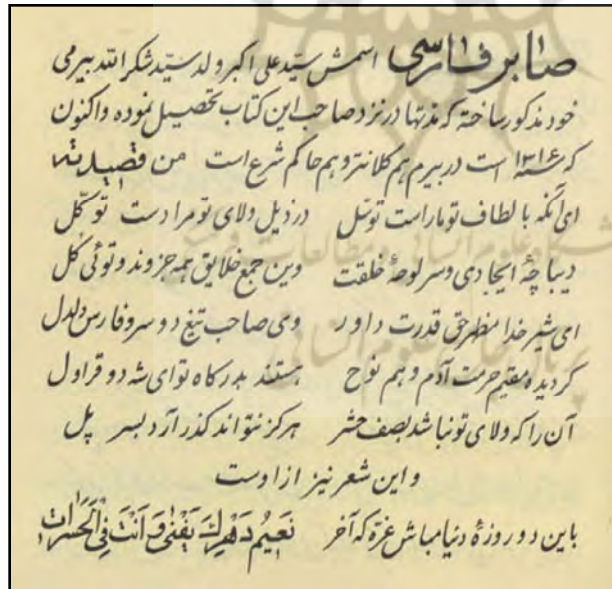 صابر فارسی اسمش سیّد علی اکبر ولد سیّد شکرالله بیرمی
خود مذکور ساخته که مدتها در نزد صاحب این کتاب تحصیل نموده و اکنون
که سنه ۱۳۱۶ است در بیرم هم کلانتر و هم حاکم شرع است من قصیدته
ای آنکه بالطاف تو ماراست توسّل در ذیل ولای تو مرا دست توکّل
دیباچهٔ ایجادی و سرلوحهٔ خلقت وین جمع خلایق همه جزوند و توئی کل
ای شیر خدا مظهر حق قدرت داور وی صاحب تیغ دو سر و فارس دلدل
کردیده مقیم حرمت آدم و هم نوح هستند بدرکاه تو ای شه دو قراول
آن را که ولای تو نباشد بصف حشر هرکز نتواند کذر آرد بسر پل
و این شعر نیز از اوست
باین دو روزهٔ دنیا مباش غرّه که آخر نَعیمُ دَهْرِكَ یَفْنیٰ وَ اَنْتَ فِی الْحَسَراتِ